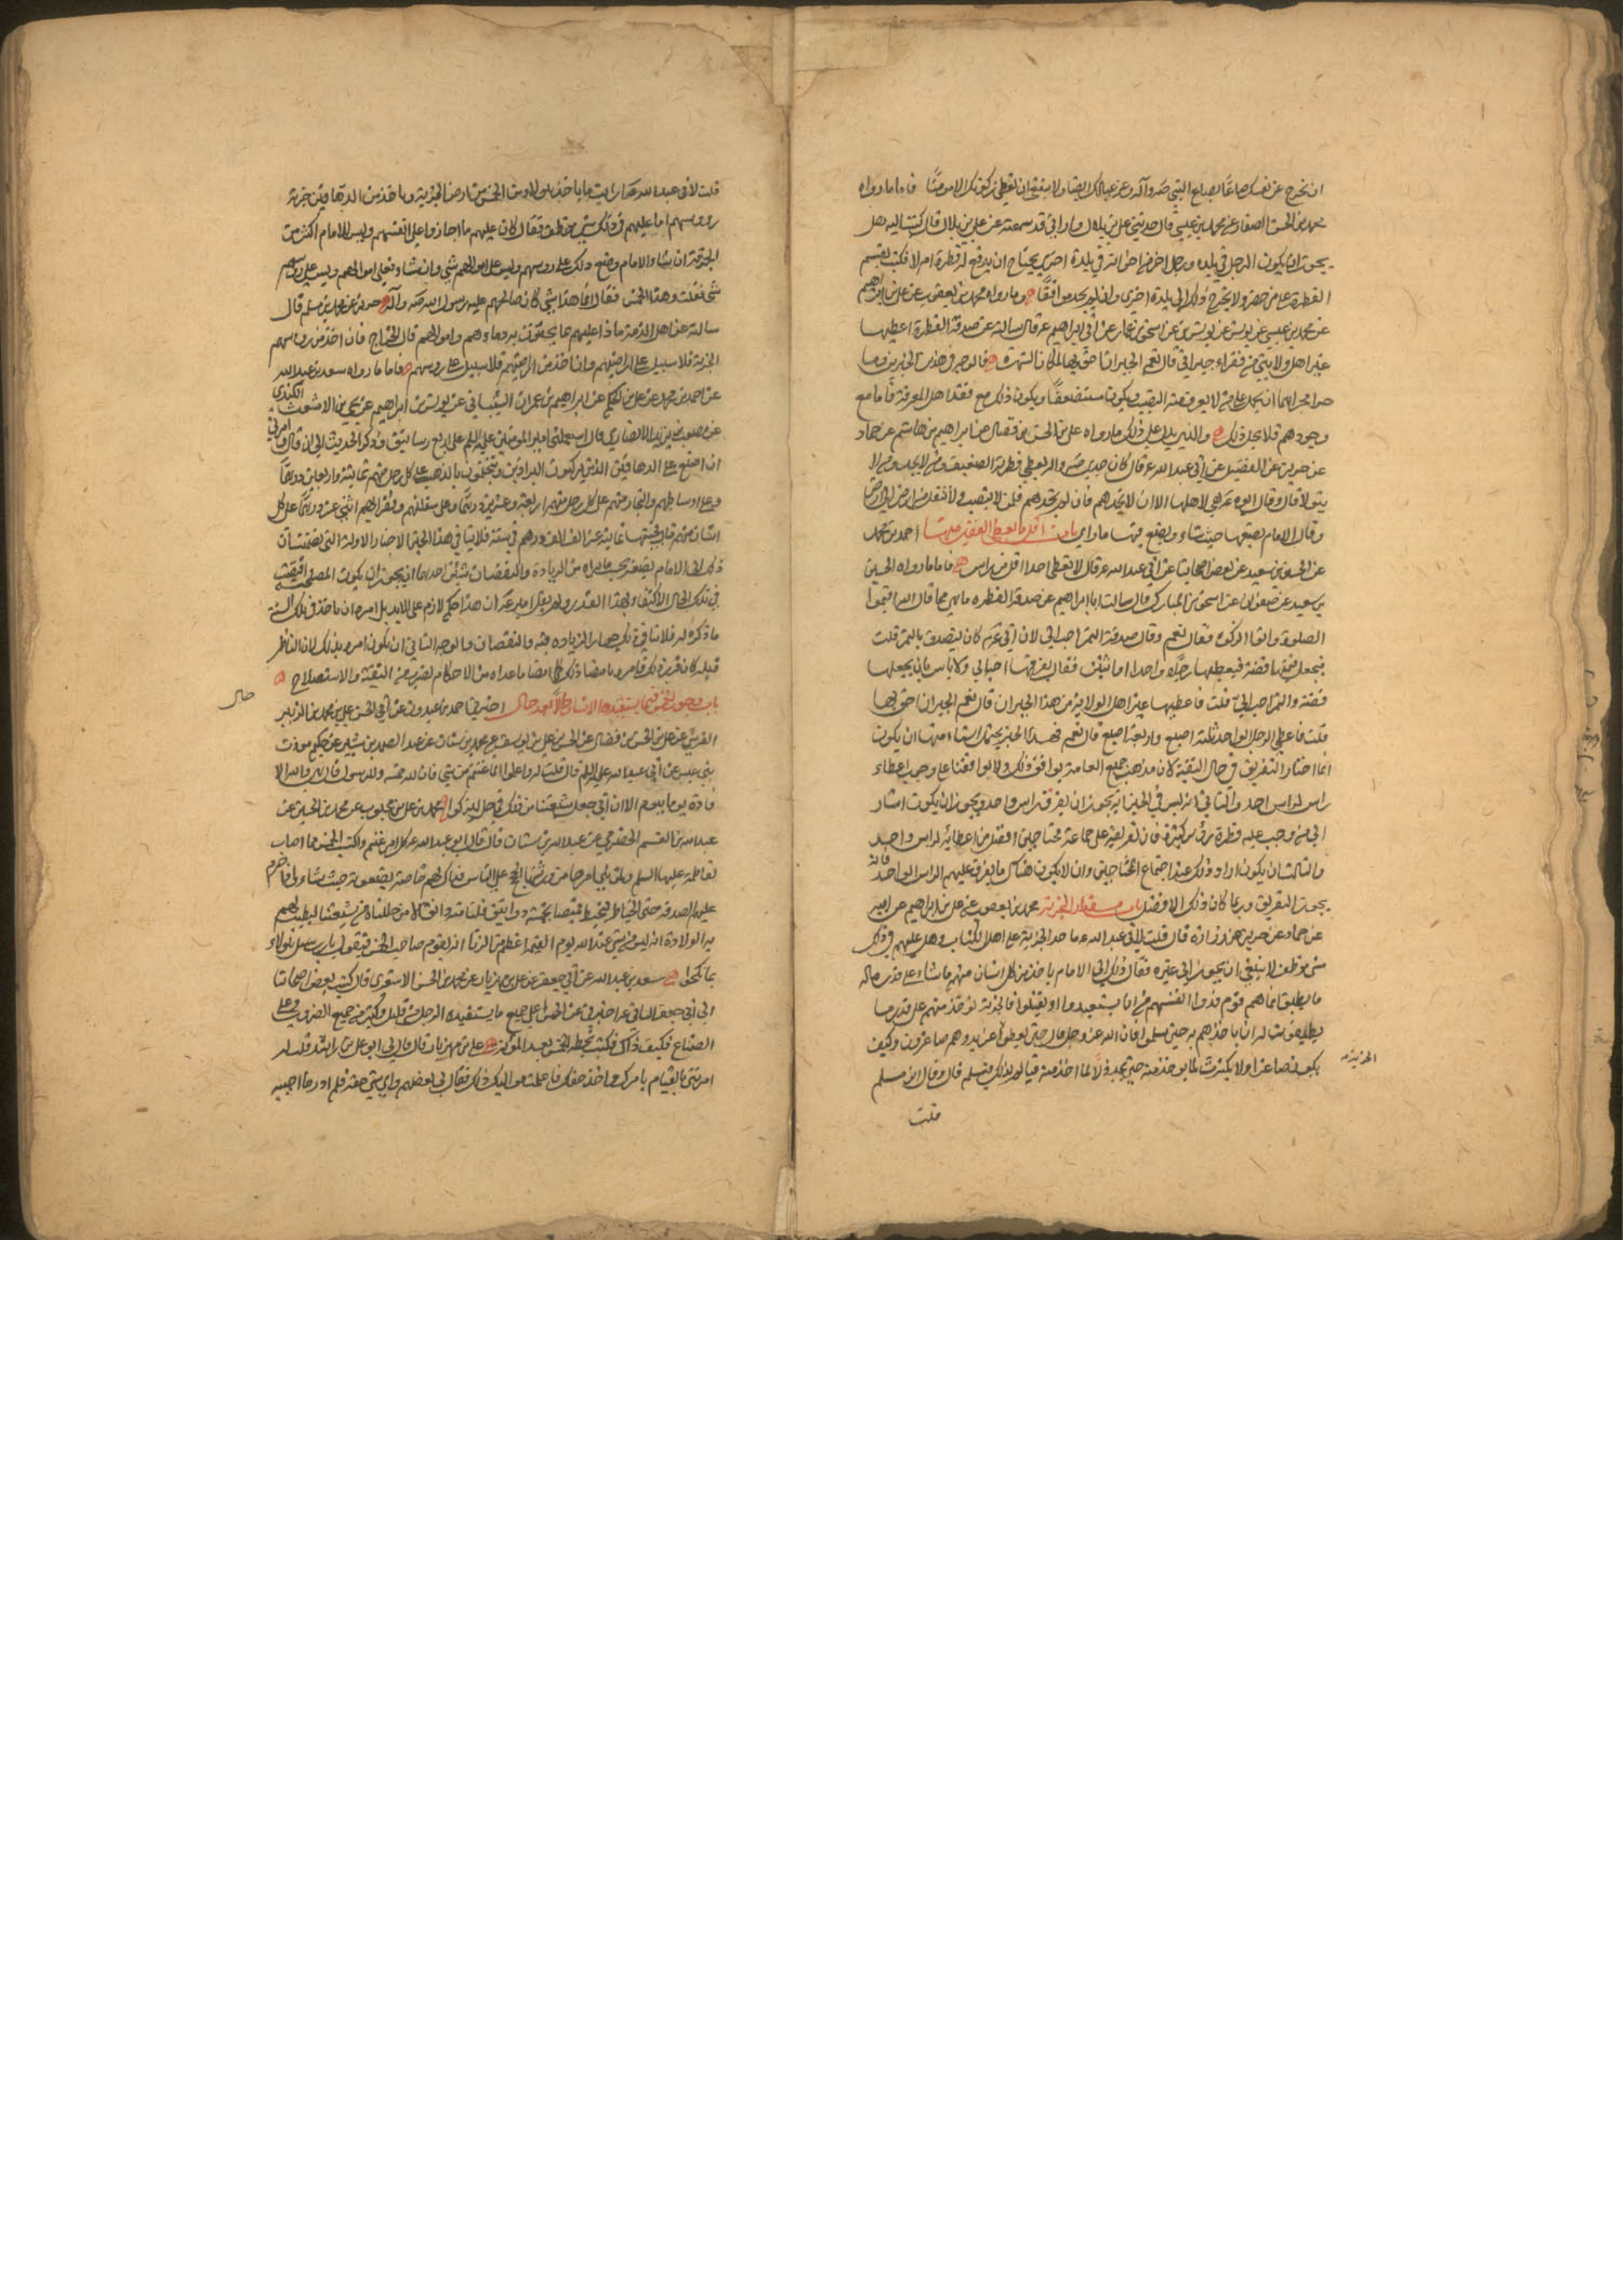 ان تخرج عن نفسك صاعا بصاع النبي صه وآله وعن عيالك ايضا ولا ينبغي ان تعطي زكوتك الا مومنا فاما ما رواه
محمد بن الحسن الصفار عن محمد بن عيسى قال حدثني علي بن بلال واراني قد سمعته عن علي بن بلال قال كتبت اليه هل
يجوز ان يكون الرجل في بلده ورجل اخر من اخوانه في بلدة اخرى يحتاج ان يوجه له فطرة ام لا فكتب تقسم
الفطرة على من حضر ولا يخرج ذلك الى بلدة اخرى وان لم يجد موافقا وما رواه محمد بن يعقوب عن علي بن ابراهيم
عن محمد بن عيسى عن يونس عن اسحق بن عمار عن ابي ابراهيم ع قال سالته عن صدقة الفطرة اعطيها
غير اهل ولايتي من فقراء جيراني قال نعم الجيران احق بها لمكان الشهرة فالوجه في هذين الخبرين وما
جرا مجراهما ان نحمله على من لا يعرف منه النصب ويكون مستضعفا ويكون ذلك مع فقد اهل المعرفة فاما مع
وجودهم فلا يجوز ذلك والذي يدل على ذلك ما رواه علي بن الحسن بن فضال عن ابراهيم بن هاشم عن حماد
عن حريز عن الفضيل عن ابي عبد الله ع قال كان جدي صه واله يعطي فطرته الضعيف ومن لا يجد ومن لا
يتولا قال وقال ابوه ع هي لاهلها الا ان لا تجدهم فان لم تجدهم فلمن لا ينصب ولا تنقل من ارض الى ارض
وقال الامام يضعها حيث شاء ويصنع فيها ما راى باب اقل ما يعطى الفقير منها احمد بن محمد
عن الحسين بن سعيد عن بعض اصحابنا عن ابي عبد الله ع قال لا تعطي احدا اقل من راس فاما ما رواه الحسين
بن سعيد عن صفوان عن اسحق بن المبارك قال سالت ابا ابراهيم عن صدقة الفطره ما هي مما قال الله اقيموا
الصلوة واتوا الزكوه فقال نعم وقال صدقة التمر احب الي لان ابي ع كان يتصدق بالتمر قلت
فيجعل قيمتها فضة فيعطيها رجلا واحدا او اثنين فقال يفرقها احب الي ولا باس بان يجعلها
فضة والتمر احب الي قلت فاعطيها غير اهل الولاية من هذا الجيران قال نعم الجيران احق بها
قلت فاعطي الرجل الواحد ثلثة اصيع واربعة اصيع قال نعم فهذا الخبر يحتمل اشياء منها ان يكون
انما اختار التفريق في حال التقية لان مذهب جميع العامة يوافق ذلك ولا يوافقنا على وجوب اعطاء
راس لراس احد والثاني انه ليس في الخبر انه يجوز ان يفرق فطرة راس واحد ويجوز ان يكون اشار
الى من وجب عليه فطرة رؤس كثيرة فان تفريقه على جماعة محتاجين افضل من اعطائه لراس واحد
والثالث ان يكون اراد ذلك عند اجتماع المحتاجين وان لا يكون هناك ما يفرق عليهم الراس الواحد فانه
يجوز التفريق وربما كان ذلك الافضل باب مقدار الجزية محمد بن يعقوب عن علي بن ابراهيم عن ابيه
عن حماد عن حريز عن زرارة قال قلت لابي عبد الله ع ما حد الجزية على اهل الكتاب وهل عليهم في ذلك
شيء موظف لا ينبغي ان يجوز الى غيره فقال ذلك الى الامام ياخذ من كل انسان منهم ما شاء على قدر ماله
ما يطيق انما هم قوم فدوا انفسهم من ان يستعبدوا او يقتلوا فالجزية تؤخذ منهم على قدر ما
يطيقون له ان ياخذهم به حتى يسلموا فان الله عز وجل قال حتى يعطوا الجزية عن يد وهم صاغرون وكيف
يكون صاغرا ولا يكترث لما يوخذ منه حتى يجد ذلا لما اخذ منه فيالم لذلك فيسلم قال وقال ابن مسلم
قلت
قلت لابي عبد الله ع ارايت ما ياخذ هولاء من الخمس من ارض الجزية وياخذ من الدهاقين جزية
رووسهم اما عليهم في ذلك شيء موظف فقال كان عليهم ما اجازوا على انفسهم وليس للامام اكثر من
الجزية ان شاء الامام وضع ذلك على روسهم وليس على اموالهم شيء وان شاء فعلى اموالهم وليس على روسهم
شيء فقلت وهذا الخمس فقال انما هذا شيء كان صالحهم عليه رسول الله صه وآله حريز عن محمد بن مسلم قال
سالته عن اهل الذمة ماذا عليهم مما يحقنون به دماءهم واموالهم قال الخراج فان اخذ من روسهم
الجزية فلا سبيل على اراضيهم وان اخذ من اراضيهم فلا سبيل على روسهم فاما ما رواه سعد بن عبد الله
عن احمد بن محمد عن علي بن الحكم عن ابراهيم بن عمران الشيباني عن يونس بن ابراهيم عن يحيى بن الاشعث الكندي
عن مصعب بن يزيد الانصاري قال استعملني امير المومنين عليه السلم على اربع رساتيق وذكر الحديث الى ان قال وامرني
ان اضع على الدهاقين الذين يركبون البراذين ويتختمون بالذهب على كل رجل منهم ثمانية واربعين درهما
وعلى اوساطهم والتجار منهم على كل رجل منهم اربعة وعشرين درهما وعلى سفلتهم وفقرائهم اثني عشر درهما على كل
انسان منهم قال فجبيتها ثمانية عشر الف الف درهم في سنة فلا ينافي هذا الخبر الاخبار الاولة التي تضمنت ان
ذلك الى الامام يضعه بحسب ما يراه من الزيادة والنقصان لشيئين احدهما انه يجوز ان يكون المصلحة اقتضت
في تلك الحال الاكتفاء بهذا القدر ولم يقل امير ع ان هذا حكم لازم على الابد بل امره ان ياخذ في تلك السنة
ما ذكره له فلا ينافي ذلك جواز الزياده فيه والنقصان والوجه الثاني ان يكون امره بذلك لان الناظر
قبله كان قرر ذلك فامره بامضاء ذلك كما امضا ما عداه من الاحكام لضرب من التقية والاستصلاح
باب وجوب الخمس فيما يستفيده الانسان حالا بعد حال اخبرني احمد بن عبدون عن ابي الحسن علي بن محمد بن الزبير
حال
القرشي عن علي بن الحسن بن فضال عن الحسن بن علي بن يوسف عن محمد بن سنان عن عبد الصمد بن بشير عن حكيم موذن
بني عبس عن ابي عبد الله عليه السلم قال قلت له واعلموا انما غنمتم من شيء فان لله خمسه وللرسول قال هي والله الا
فادة يوما بيوم الا ان ابي جعل شيعتنا من ذلك في حل ليزكوا محمد بن علي بن محبوب عن محمد بن الحسين عن
عبد الله بن القسم الحضرمي عن عبد الله بن سنان قال قال ابو عبد الله ع كل امرء غنم واكتسب الخمس مما اصاب
لفاطمة عليها السلم ولمن يلي امرها من ورثتها الحجج على الناس فذاك لهم خاصة يضعونه حيث شاءوا وحرم
عليهم الصدقه حتى الخياط ليخيط قميصا بخمسة دوانيق فلنا منه دانق الا من احللناه من شيعتنا ليطيب لهم
به الولادة انه ليس من شيء عند الله يوم القيمة اعظم من الزنا انه ليقوم صاحب الخمس فيقول يا رب سل هولاء
بما نكحوا سعد بن عبد الله عن ابي جعفر عن علي بن مهزيار عن محمد بن الحسن الاشعري قال كتب بعض اصحابنا
الى ابي جعفر الثاني ع اخبرني عن الخمس اعلى جميع ما يستفيده الرجل من قليل وكثير من جميع الضروب وعلى
الصناع فكيف ذاك فكتب بخطه الخمس بعد المؤنة علي بن مهزيار قال قال لي ابو علي بن راشد قلت له
امرتني بالقيام بامرك واخذ حقك فاعلمت مواليك ذلك فقال لي بعضهم واي شيء حقه فلم ادر ما اجيبه